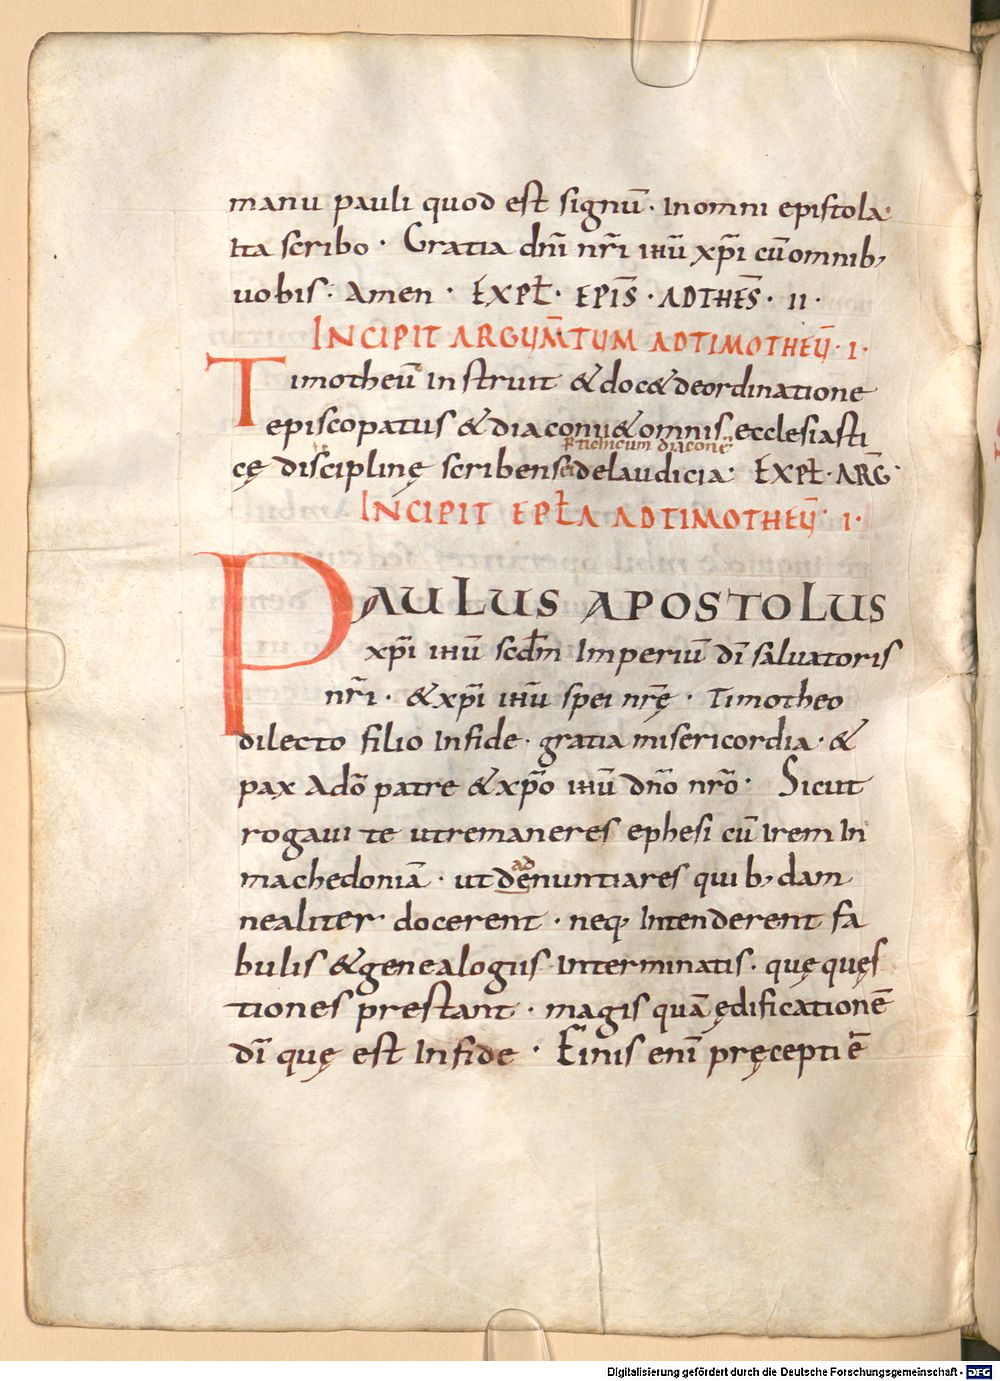 manu pauli quod est signū· In omni epistola·
Ita scribo· Gratia dn̄i nr̄i ihū xp̄i cū omnib;
uobis: Amen· EXPꝉ· EPIS̄· AD THES̄· II·
INCIPIT ARGUM̄TUM AD TIMOTHEŪ· I·
Timotheū Instruit & doc& de ordinatione
episcopatus & diaconii & omnis ecclesiasti
p tichicum diaconē
cę disciplinę scribens ei de laudicia· EXPꝉ· ARḠ·
INCIPIT EPꝉA AD TIMOTHEŪ· I·
PAULUS APOSTOLUS
xp̄i ihū scd̄m Imperiū dī saluatoris
nr̄i· & xp̄i ihū spei nr̄ę· Timotheo
dilecto filio In fide· gratia misericordia· &
pax A dō patre & xp̄o ihū dn̄o nr̄o· Sicut
rogaui te ut remaneres ephesi cū Irem In
ad
machedoniā· ut denuntiares quib; dam
ne aliter docerent· neq; Intenderent fa
bulis & genealogiis Interminatis· quę quęs
tiones prestant· magis quā ędificationē
dī quę est In fide· Finis enī pręcepti ē
Digitalisierung gefördert durch die Deutsche Forschungsgemeinschaft - DFG